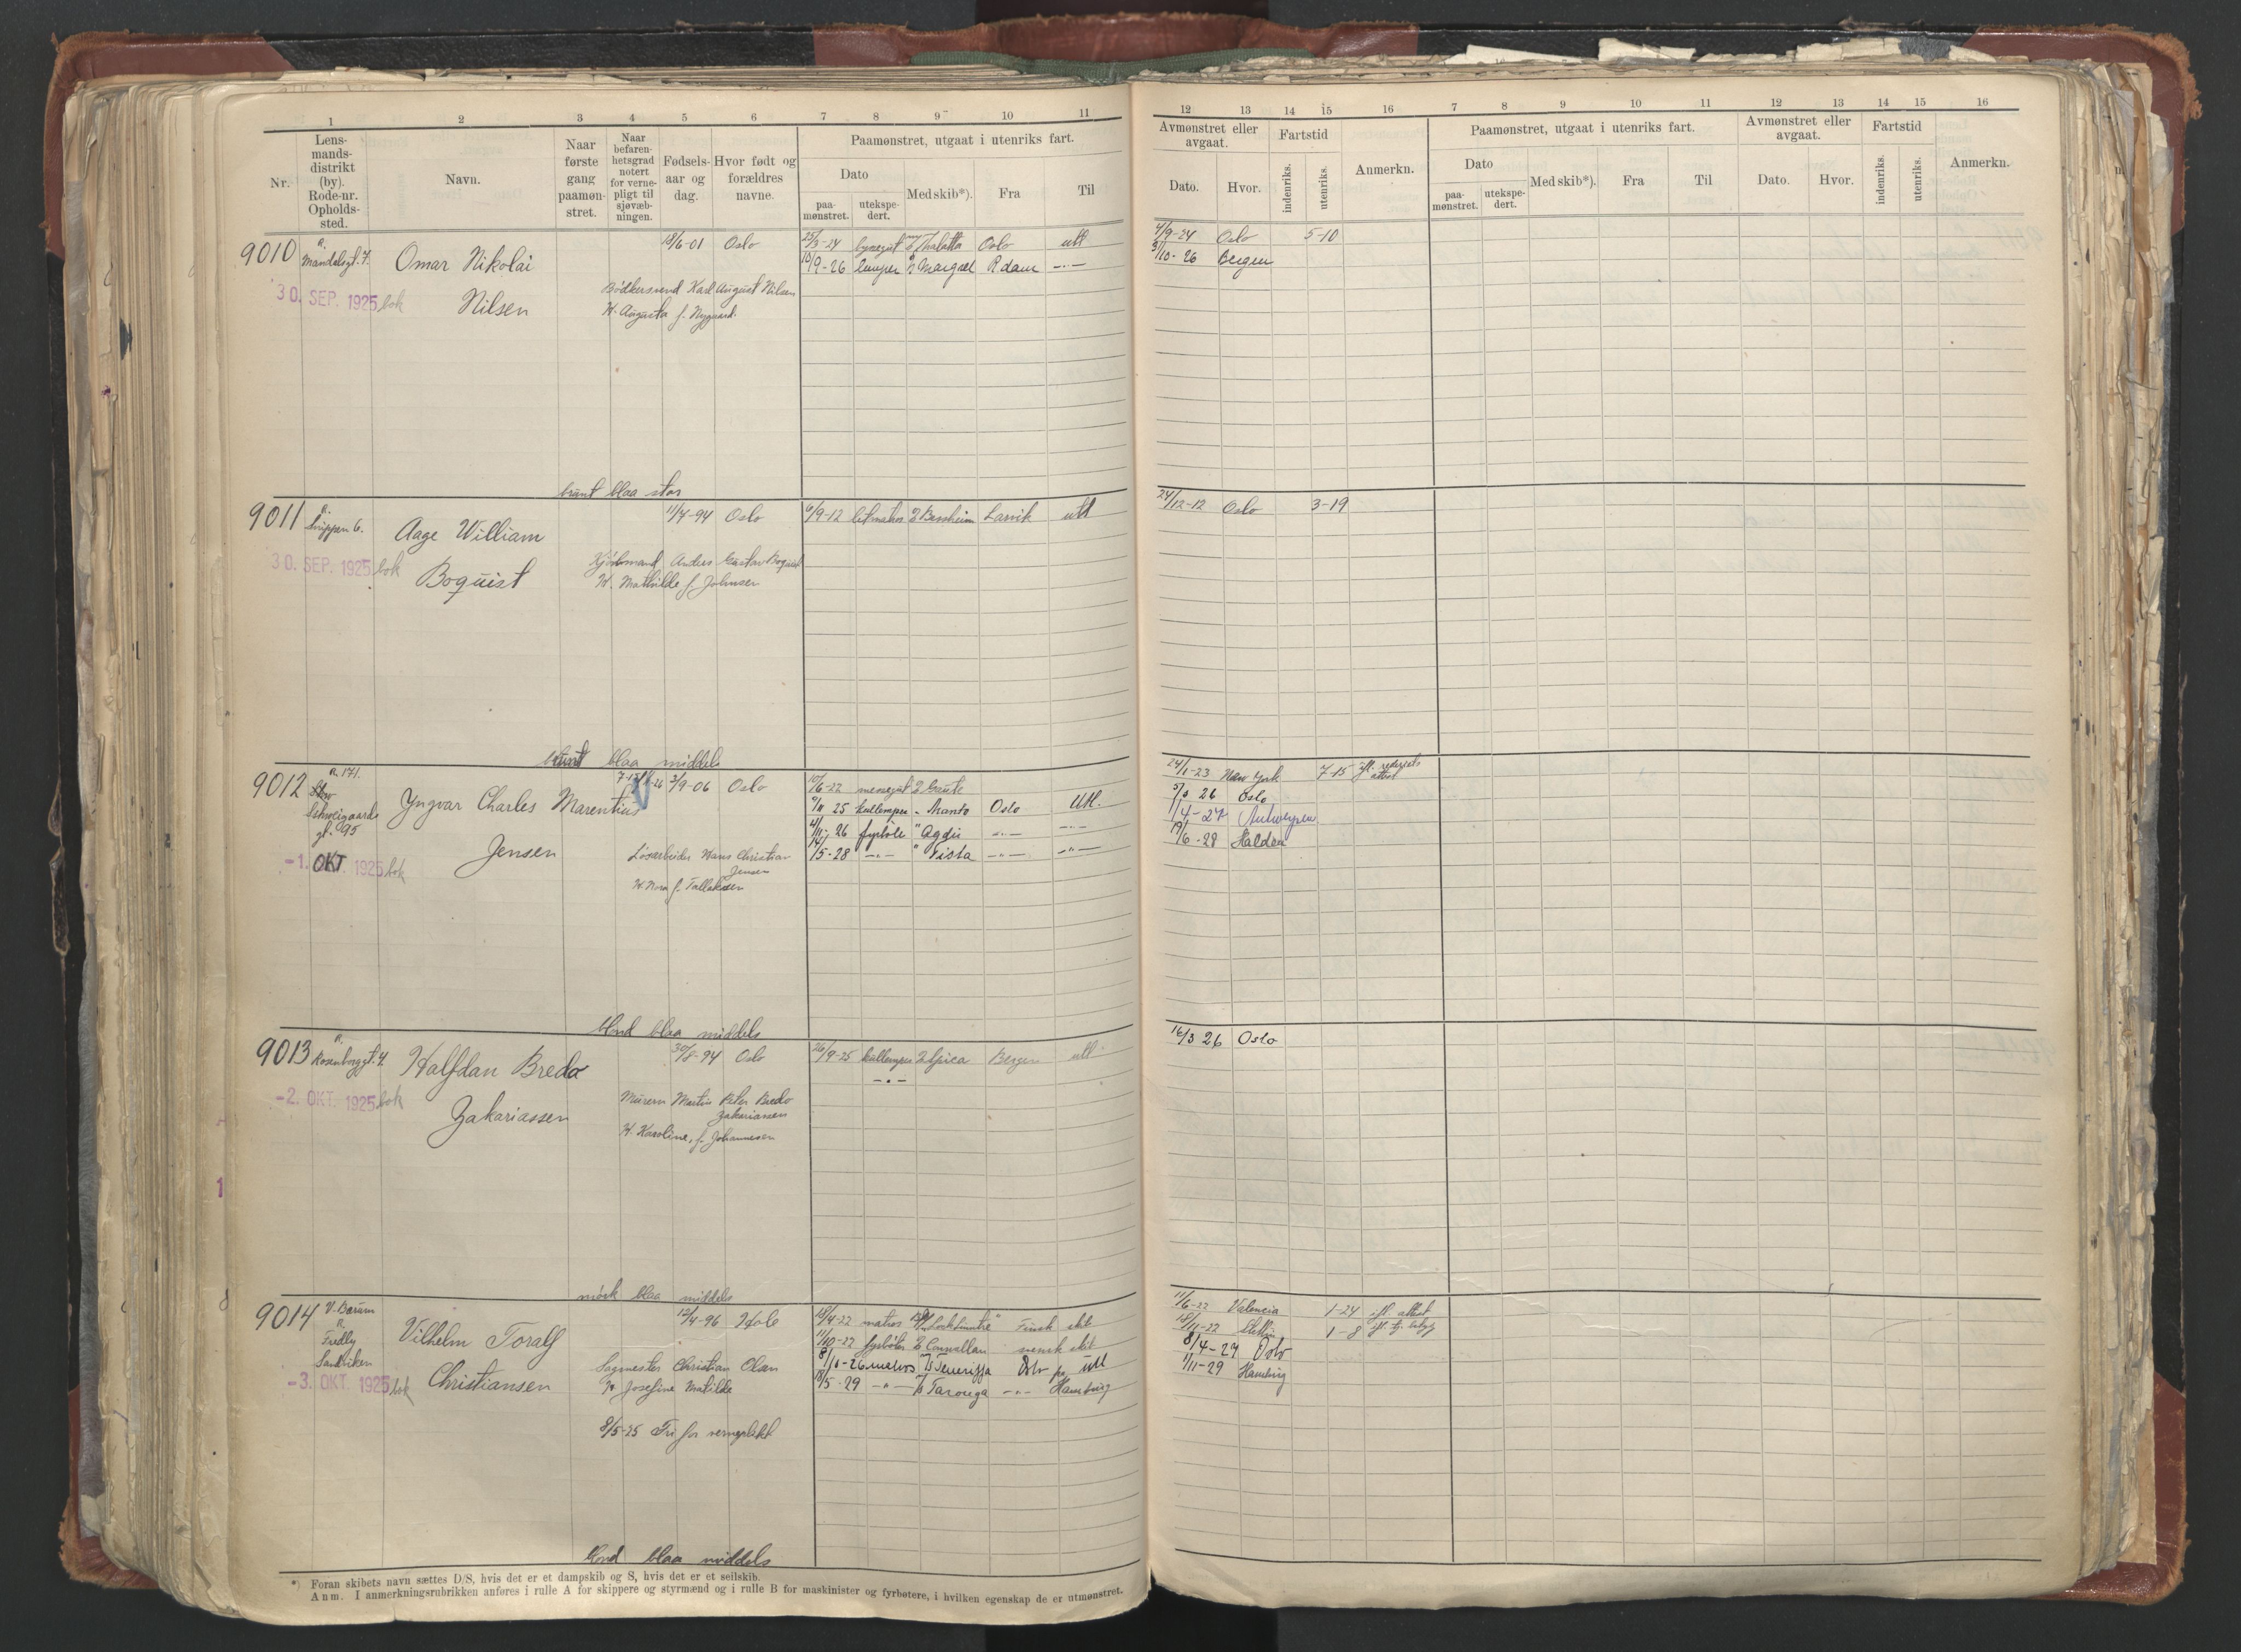 1 2 3 4 5 6 7 8 9 10 11
Nr. Lens-mands-distrikt (by). Rode-nr. Opholds-sted. Navn. Naar første gang paamøn-stret. Naar befaren-hetsgrad notert for verne-pligt til sjøvæb-ningen. Fødsels-aar og dag. Hvor født og forældres navne. Paamønstret, utgaat i utenriks fart.
Dato Med skib*). Fra Til
paa-mønstret. utekspe-dert.
9010 Mandalsgt. 7. Omar Nikolai 18/6-01 Oslo 25/3-24 Thalatta Oslo utl
10/9-26 lemper Margrel Rdam -"-
30. SEP. 1925 bok Nilsen Bødkersvend Karl August Nilsen
H. Augusta f. Nygaard.
brunt blaa stor
9011 Snippen 6. Aage William 11/7-94 Oslo 6/9-12 letmatros Larvik utl
30. SEP. 1925 bok Boquist Anders Gustav Boquist
H. Mathilde f. Johnsen
brunt blaa middels
9012 R. 171. Schweigaards gt. 95 Yngvar Charles Marentius 3/9-06 Oslo 10/6-22 messegut Gaute
25 kullemper Oslo Utl.
26 fyrbøte " Agdir -"- -"-
14/5-28 -"- " Vista -"- -"-
-1. OKT. 1925 bok Jensen Løsarbeider Hans Christian Jensen
H. Nora f. Tallaksen
blond blaa middels
9013 Rosenborggt. 4. Halfdan Bredo 30/8-94 Oslo 26/9-25 kullemper Spica Bergen utl
-"-
-2. OKT. 1925 bok Zakariassen Murern Martin Peter Bredo Zakariassen
H. Karoline, f. Johannesen
mørk blaa middels
9014 V. Bærum Fredly Sandviken Vilhelm Toralf 12/4-96 Hole 18/4-22 matros Finsk skib
11/10-22 fyrbøter svensk skib
26 matros Teneriffa Oslo utl
18/5-29 -"- Taronga -"- Hamburg
-3. OKT. 1925 bok Christiansen Sagmester Christian Olsen
H. Josefine Matilde
8/5-25 Fri for verneplikt
blond blaa middels
*) Foran skibets navn sættes D/S, hvis det er et dampskib og S, hvis det er et seilskib.
Anm. I anmerkningsrubrikken anføres i rulle A for skippere og styrmænd og i rulle B for maskinister og fyrbøtere, i hvilken egenskap de er utmønstret.
12 13 14 15 16 7 8 9 10 11 12 13 14 15 16
Avmønstret eller avgaat. Fartstid Anmerkn. Paamønstret, utgaat i utenriks fart. Avmønstret eller avgaat. Fartstid Anmerkn.
Dato. Hvor. indenriks. utenriks. Dato Med skib*). Fra Til Dato. Hvor. indenriks. utenriks.
paa-mønstret. utekspe-dert.
4/9-24 Oslo 5-10
5/10-26 Bergen
24/12-12 Oslo 3-19
24/1-23 New York 7-15 ifl. rederiets attest
26 Oslo
1/4-27 Antwerpen
19/6-28 Halden
16/3 26 Oslo
11/6-22 Valencia 1-24 ifl. attest
18/11-22 Stettin 1-8
8/4-29 Oslo
1/11-29 Hamburg